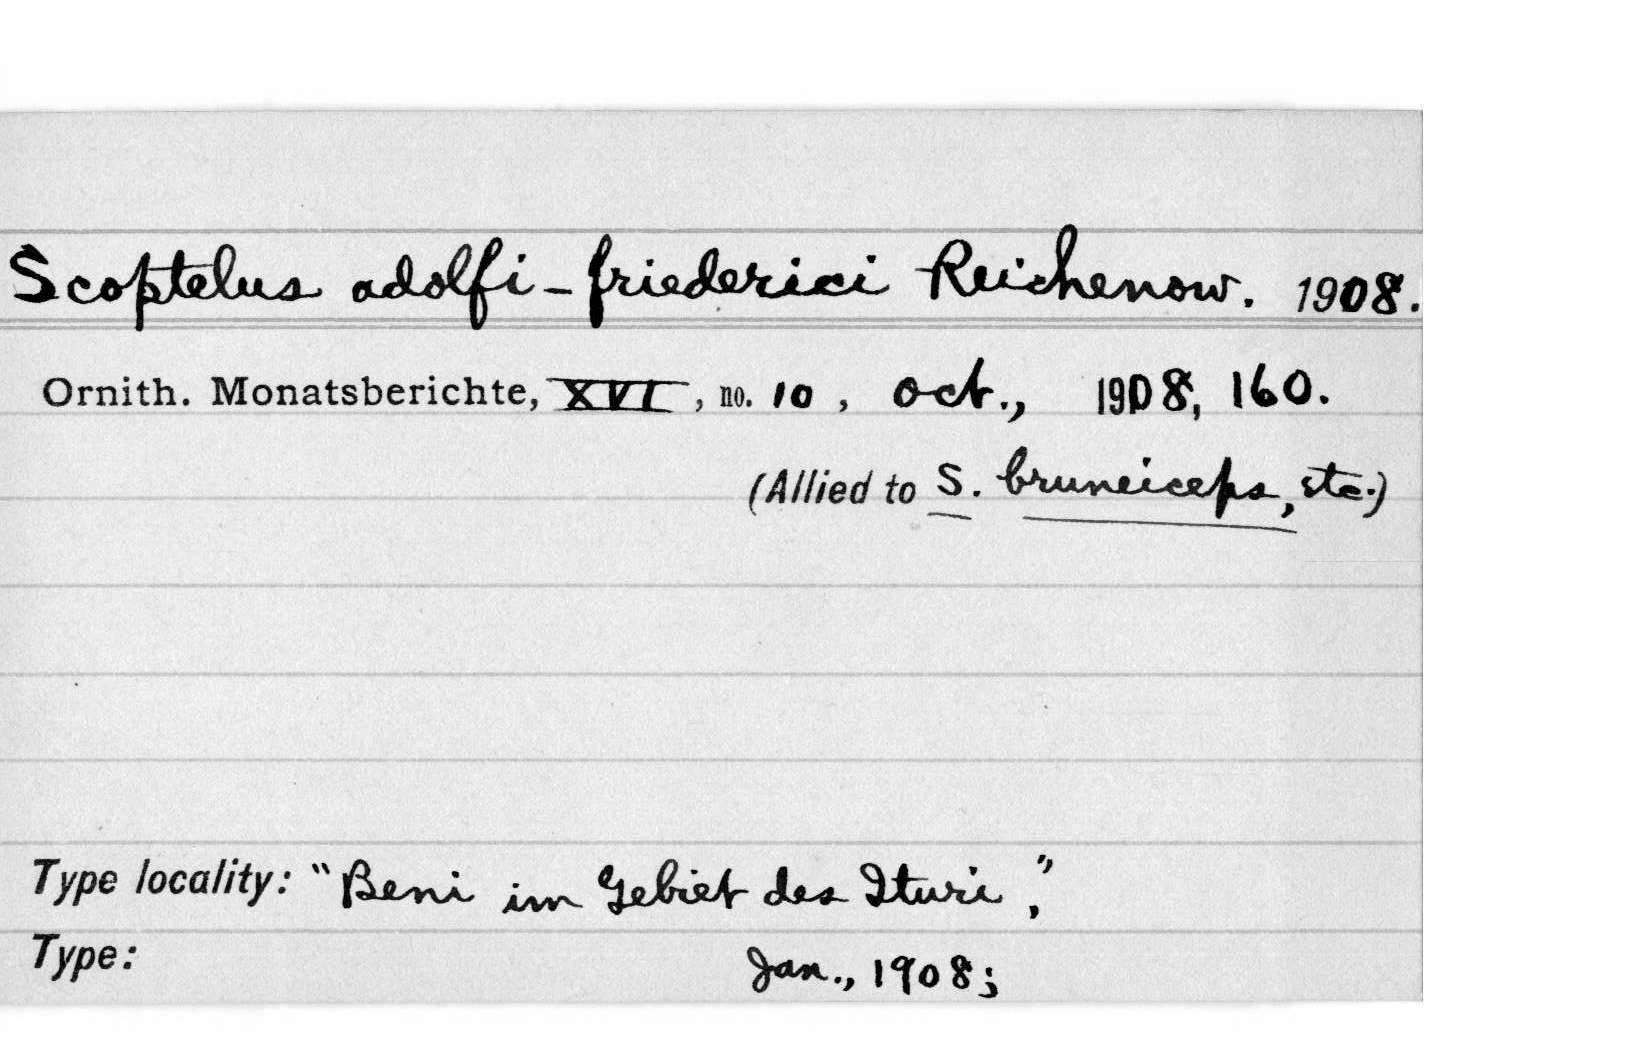 Scoptelus adolfi-friederici Reichenow. 1908.
Ornith. Monatsberichte, XVI, no. 10, Oct., 1908, 160.
(Allied to S. bruneiceps, etc.)
Type locality: "Beni im Gebiet des Ituri,"
Type: Jan., 1908;